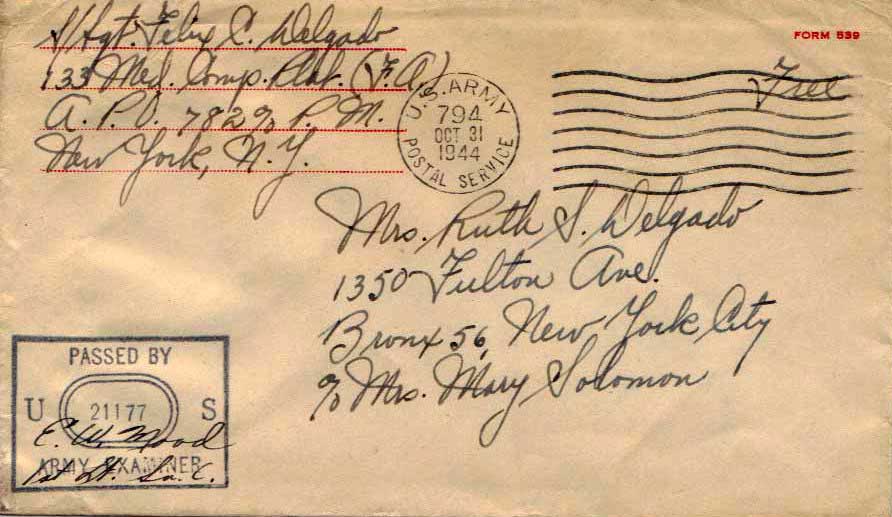 S/Sgt. Felix C. Delgado
133 Med. Comp. Plat. (F.A.)
A. P. O. 782 ℅ P. M.
New York, N. Y.
FORM 539
Free
U.S. ARMY
794
OCT 31
1944
POSTAL SERVICE
Mrs. Ruth S. Delgado
1350 Fulton Ave.
Bronx 56, New York City
℅ Mrs. Mary Solomon
PASSED BY
U 21177 S
E. W. Mood
ARMY EXAMINER
1st Lt. Sn. C.